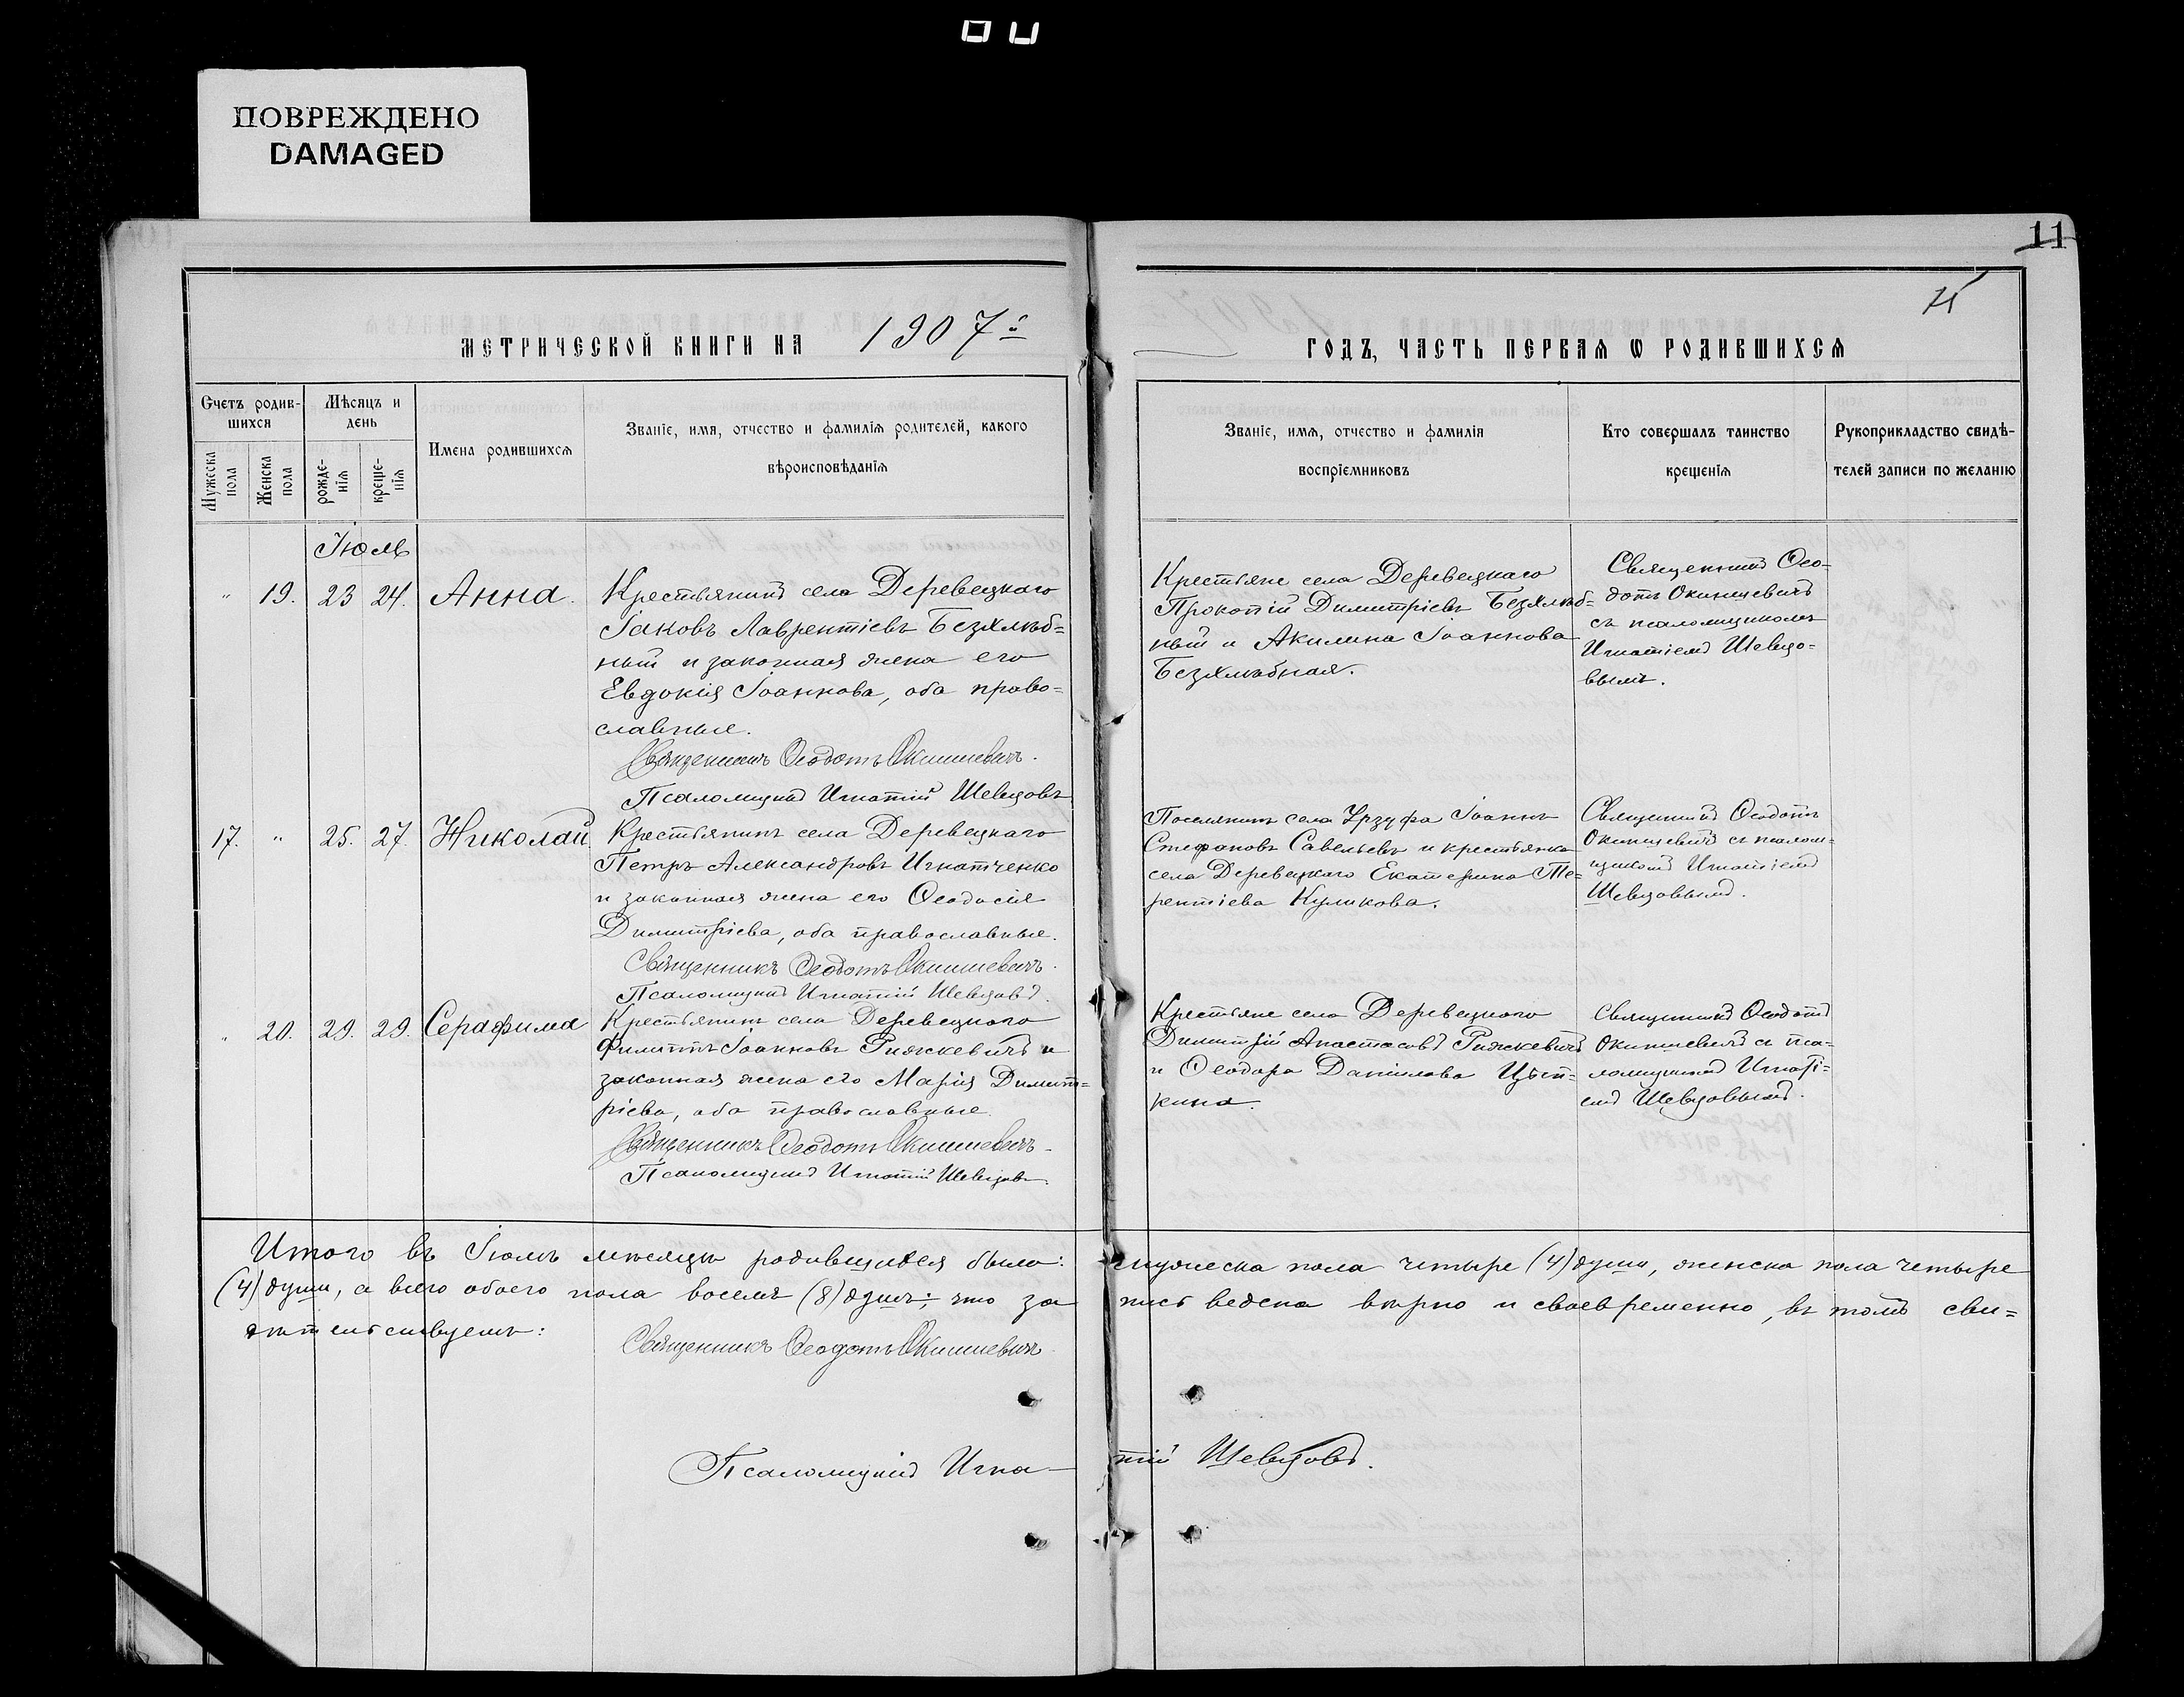 ПОВРЕЖДЕНО
DAMAGED
11
МЕТРИЧЕСКОЙ КНИГИ НА 1907й
ГОДЪ, ЧАСТЬ ПЕРВАЯ Ѡ РОДИВШИХСЯ
Счетъ родив-
шихся
Мужеска пола
Женска пола
Мѣсяцъ и
день
рожде-
нія
креще-
нія
Имена родившихся
Званіе, имя, отчество и фамилія родителей, какого
вѣроисповѣданія
Званіе, имя, отчество и фамилія
воспріемниковъ
Кто совершалъ таинство
крещенія
Рукоприкладство свидѣ-
телей записи по желанію
Іюль
" 19. 23 24. Анна.
Крестьянинъ села Деревецкаго
Іаковъ Лаврентіевъ Безхлѣб=
ный и законная жена его
Евдокія Іоаннова, оба право=
славные.
Священникъ Ѳеодотъ Окишевичъ.
Псаломщикъ Игнатій Шевцовъ
Крестьяне села Деревецкаго
Прокопій Димитріевъ Безхлѣб=
ный и Акилина Іоаннова
Безхлѣбная.
Священникъ Ѳео-
дотъ Окишевичъ
съ псаломщикомъ
Игнатіемъ Шевцо=
вымъ.
17. " 25. 27. Николай
Крестьянинъ села Деревецкаго
Петръ Александровъ Игнатченко
и законная жена его Ѳеодосія
Димитріева, оба православные.
Священникъ Ѳеодотъ Окишевичъ.
Псаломщикъ Игнатій Шевцовъ.
Поселянинъ села Урзуфа Іоаннъ
Стефановъ Савельевъ и крестьянка
села Деревецкаго Екатерина Те=
рентіева Куликова.
Священникъ Ѳеодотъ
Окишевичъ съ псалом=
щикомъ Игнатіемъ
Шевцовымъ.
" 20. 29. 29. Серафима
Крестьянинъ села Деревецкаго
Филиппъ Іоанновъ Гижкевичъ и
законная жена его Марія Димит=
ріева, оба православные.
Священникъ Ѳеодотъ Окишевичъ.
Псаломщикъ Игнатій Шевцовъ.
Крестьяне села Деревецкаго
Димитрій Анастасовъ Гижкевичъ
и Ѳеодора Данилова Цѣп=
кина.
Священникъ Ѳеодотъ
Окишевичъ съ пса=
ломщикомъ Игнаті=
емъ Шевцовымъ.
Итого въ Іюлѣ мѣсяцѣ родившихся было: мужеска пола четыре (4) души, женска пола четыре
(4) души, а всего обоего пола восемь (8) душъ; что запись ведена вѣрно и своевременно, въ томъ сви=
дѣтельствуемъ:
Священникъ Ѳеодотъ Окишевичъ
Псаломщикъ Игнатій Шевцовъ.